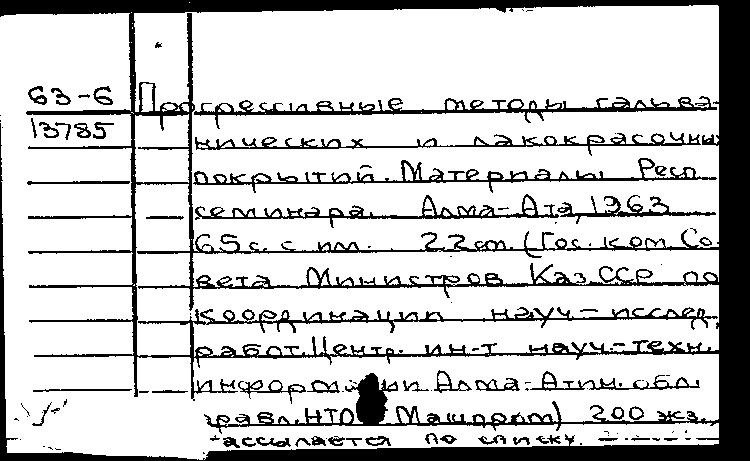 63-6 Прогрессивные методы гальва-
13785 нических и лакокрасочных
покрытий. Материалы Респ
семинара. Алма-Ата, 1963
65 с. с ил. 22 см. (Гос. ком. Со-
вета Министров Каз.ССР по
координации науч-исслед.
работ. Центр. ин-т науч.-техн.
информации Алма-Атин. обл.
правл. НТО Машпром) 200 экз.,
рассылается по списку.